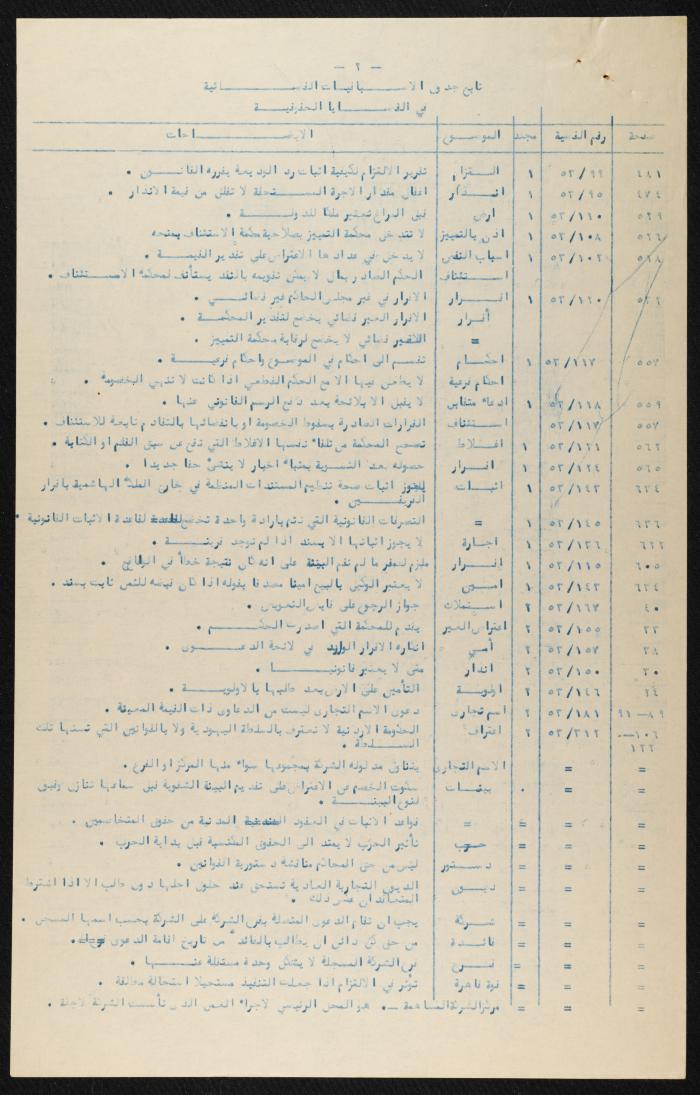 — ٢ —
تابع جدول الاسبانيات القضائية
في القضايا الحقوقية
صفحة رقم القضية مجلد الموضوع الايضاحات
٤٨١ ٥٢/٩٩ ١ التزام تقرير الالتزام لكيفية اثبات رد الوديعة يقرره القانون .
٤٧٤ ٥٢/٩٥ ١ انذار اغفال مقدار الاجرة المستحقة لا تقلل من قيمة الانذار .
٥٢٩ ٥٢/١١٠ ١ ارض قبل الفراغ تعتبر ملكا للدولة .
٥٢٦ ٥٢/١٠٨ ١ اذن بالتمييز لا تتدخل محكمة التمييز بصلاحية محكمة الاستئناف بمنحه
٥٢٨ ٥٢/١٠٢ ١ اسباب النقض لا يدخل في عدادها الاعتراض على تقدير القيمة .
استئناف الحكم الصادر بمال لا يمكن تقويمه بالنقد يستأنف لمحكمة الاستئناف .
٥٢٢ ٥٢/١٢٠ ١ اقرار الاقرار في غير مجلس الحاكم غير قضائي .
أقرار الاقرار الغير قضائي يخضع لتقدير المحكمة .
= الغير قضائي لا يخضع لرقابة محكمة التمييز .
٥٥٧ ٥٢/١١٧ ١ احكام تقسم الى احكام في الموضوع واحكام فرعية .
احكام فرعية لا يطعن فيها الا مع الحكم القطعي اذا كانت لا تنهي الخصومة .
٥٥٩ ٥٢/١١٨ ١ ادعاء متقابل لا يقبل الا بلائحة بعد دفع الرسم القانوني عنها .
٥٥٧ ٥٢/١١٧ استئناف القرارات الصادرة بسقوط الخصومة او بانقضائها بالتقادم تابعة للاستئناف .
٥٦٢ ٥٢/١٢١ ١ اغلاط تصحح المحكمة من تلقاء نفسها الاغلاط التي تقع عن سبق القلم او الكتابة .
٥٦٥ ٥٢/١٢٤ ١ اقرار حصوله بعد التسوية بمثابة اخبار لا ينشئ حقا جديدا .
٦٢٤ ٥٢/١٤٢ ١ اثبات يجوز اثبات صحة تنظيم المستندات المنظمة في خارج المملكة الهاشمية باقرار
الفريقين .
٦٣٦ ٥٢/١٤٥ ١ = التصرفات القانونية التي تتم بارادة واحدة تخضع لقاعدة الاثبات القانونية .
٦٢٢ ٥٢/١٣٦ ١ اجارة لا يجوز اثباتها الا بسند اذا لم توجد قرينة .
٦٠٥ ٥٢/١١٥ ١ اقرار ملزم للمقر ما لم تقم البينة على انه كان نتيجة خطأ في الوقائع .
٦٢٤ ٥٢/١٤٢ ١ امين لا يعتبر الوكيل بالبيع امينا مصدقا بقوله اذا كان قبضه للثمن ثابت بسند .
٤٠ ٥٢/١٦٧ ٢ استملاك جواز الرجوع على قابل التعويض .
٢٢ ٥٢/١٥٥ ٢ اعتراض الغير يقدم للمحكمة التي اصدرت الحكم .
٢٨ ٥٢/١٥٧ ٢ أمي انكاره الاقرار الوارد في لائحة الدعوى .
٢٠ ٥٢/١٥٠ ٢ انذار متى لا يعتبر قانونيا .
٢٤ ٥٢/١٤٦ ٢ اولوية التأمين على الارض بعد طلبها بالاولوية .
٨٩—٩١ ٥٢/١٨١ ٢ اسم تجاري دعوى الاسم التجاري ليست من الدعاوى ذات القيمة المعينة .
١٠٦— ٥٢/٢١٢ ٢ اعتراف الحكومة الاردنية لا تعترف بالسلطة اليهودية ولا بالقوانين التي تسنها تلك
١٢٢ السلطة .
= = الاسم التجاري يتناول مدلوله الشركة بمجموعها سواء منها المركز او الفرع .
= = . بينات سكوت الخصم عن الاعتراض على تقديم البينة الشفوية قبل سماعها تنازل وقبول
لنوع البينة .
= = = = قواعد الاثبات في الحقوق المدنية من حقوق المتخاصمين .
= = = حرب تأثير الحرب لا يمتد الى الحقوق المكتسبة قبل بداية الحرب .
= = = دستور ليس من حق المحاكم مناقشة دستورية القوانين .
= = = ديون الديون التجارية العادية تستحق عند حلول اجلها دون طلب الا اذا اشترط
المتعاقدان على ذلك .
= = = شركة يجب ان تقام الدعوى المتصلة بفرع الشركة على الشركة بحسب اسمها المسجل .
= = = فائدة من حق كل دائن ان يطالب بالفائدة من تاريخ اقامة الدعوى .
= = = فرع فرع الشركة المسجلة لا يشكل وحدة مستقلة عنها .
= = = قوة قاهرة تؤثر في الالتزام اذا جعلت التنفيذ مستحيلا استحالة مطلقة .
= = = مركز الشركة المساهمة — هو المحل الرئيسي لاجراء العمل الذي تأسست الشركة لاجله .